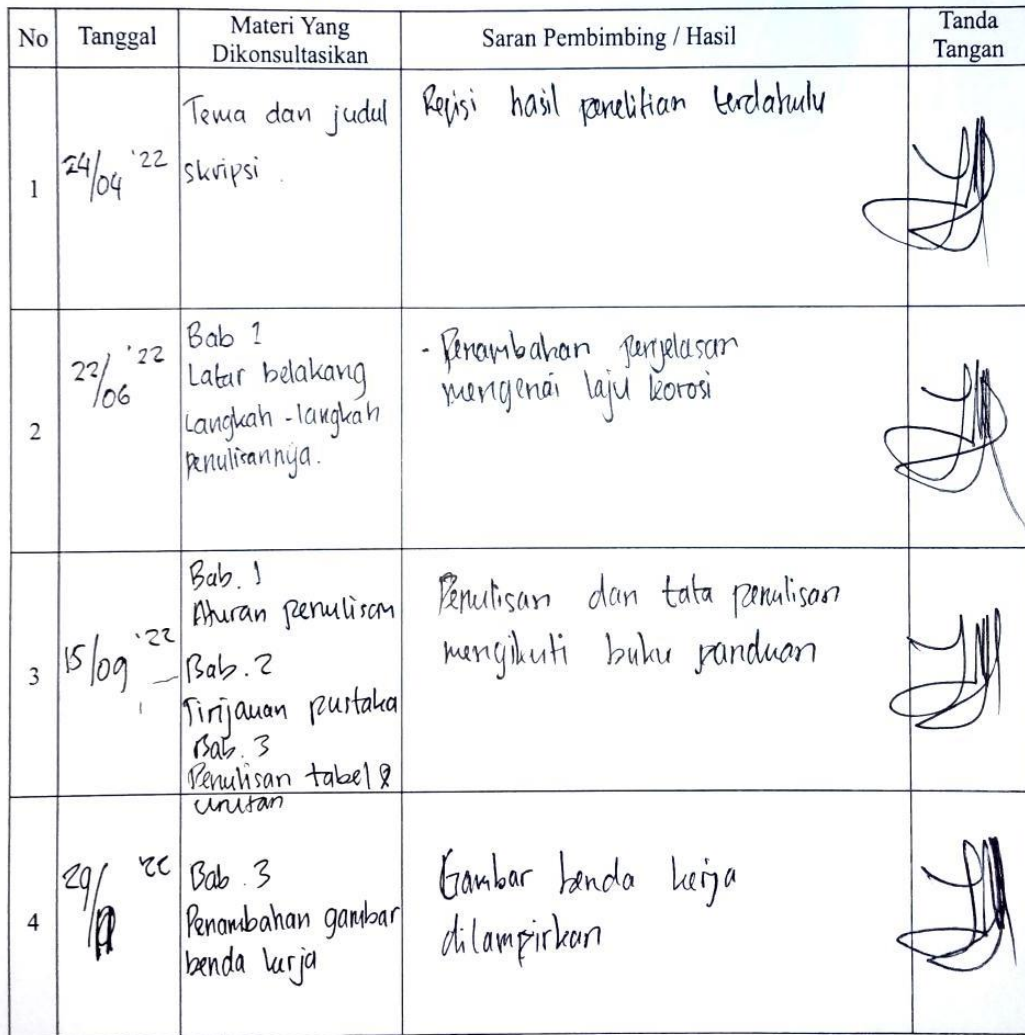 No
Tanggal
Materi Yang
Dikonsultasikan
Saran Pembimbing / Hasil
Tanda
Tangan
1
24/04 '22
Tema dan judul
skripsi.
Revisi hasil penelitian terdahulu
2
22/06 '22
Bab 1
Latar belakang
Langkah-langkah
penulisannya.
- Penambahan penjelasan
mengenai laju korosi
3
15/09 '22
Bab. 1
Aturan penulisan
Bab. 2
Tinjauan pustaka
Bab. 3
Penulisan tabel &
urutan
Penulisan dan tata penulisan
mengikuti buku panduan
4
29/ '22
Bab. 3
Penambahan gambar
benda kerja
Gambar benda kerja
dilampirkan